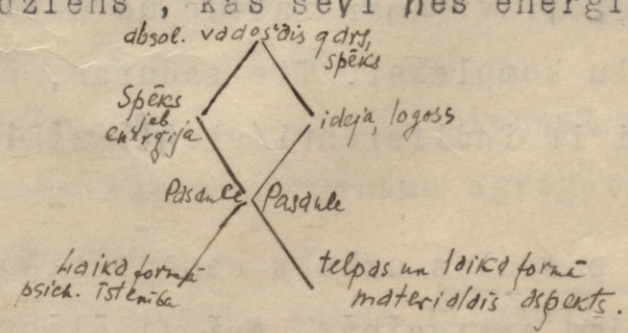 dziens , kas sevī nes enerģi
absol. vadošais gars,
spēks
Spēks
jeb
enerģija
ideja, logoss
Pasaule Pasaule
Laika formā
psich. īstenība
telpas un laika formā
materiālais aspekts.